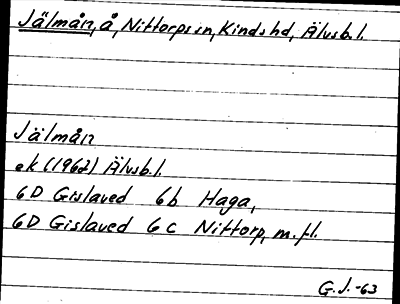 Jälmån, å, Nittorps sn, Kinds hd, Älvsb. l.
Jälmån
ek (1962) Älvsb. l.
6D Gislaved 6b Haga,
6D Gislaved 6c Nittorp, m. fl.
G. J. -63